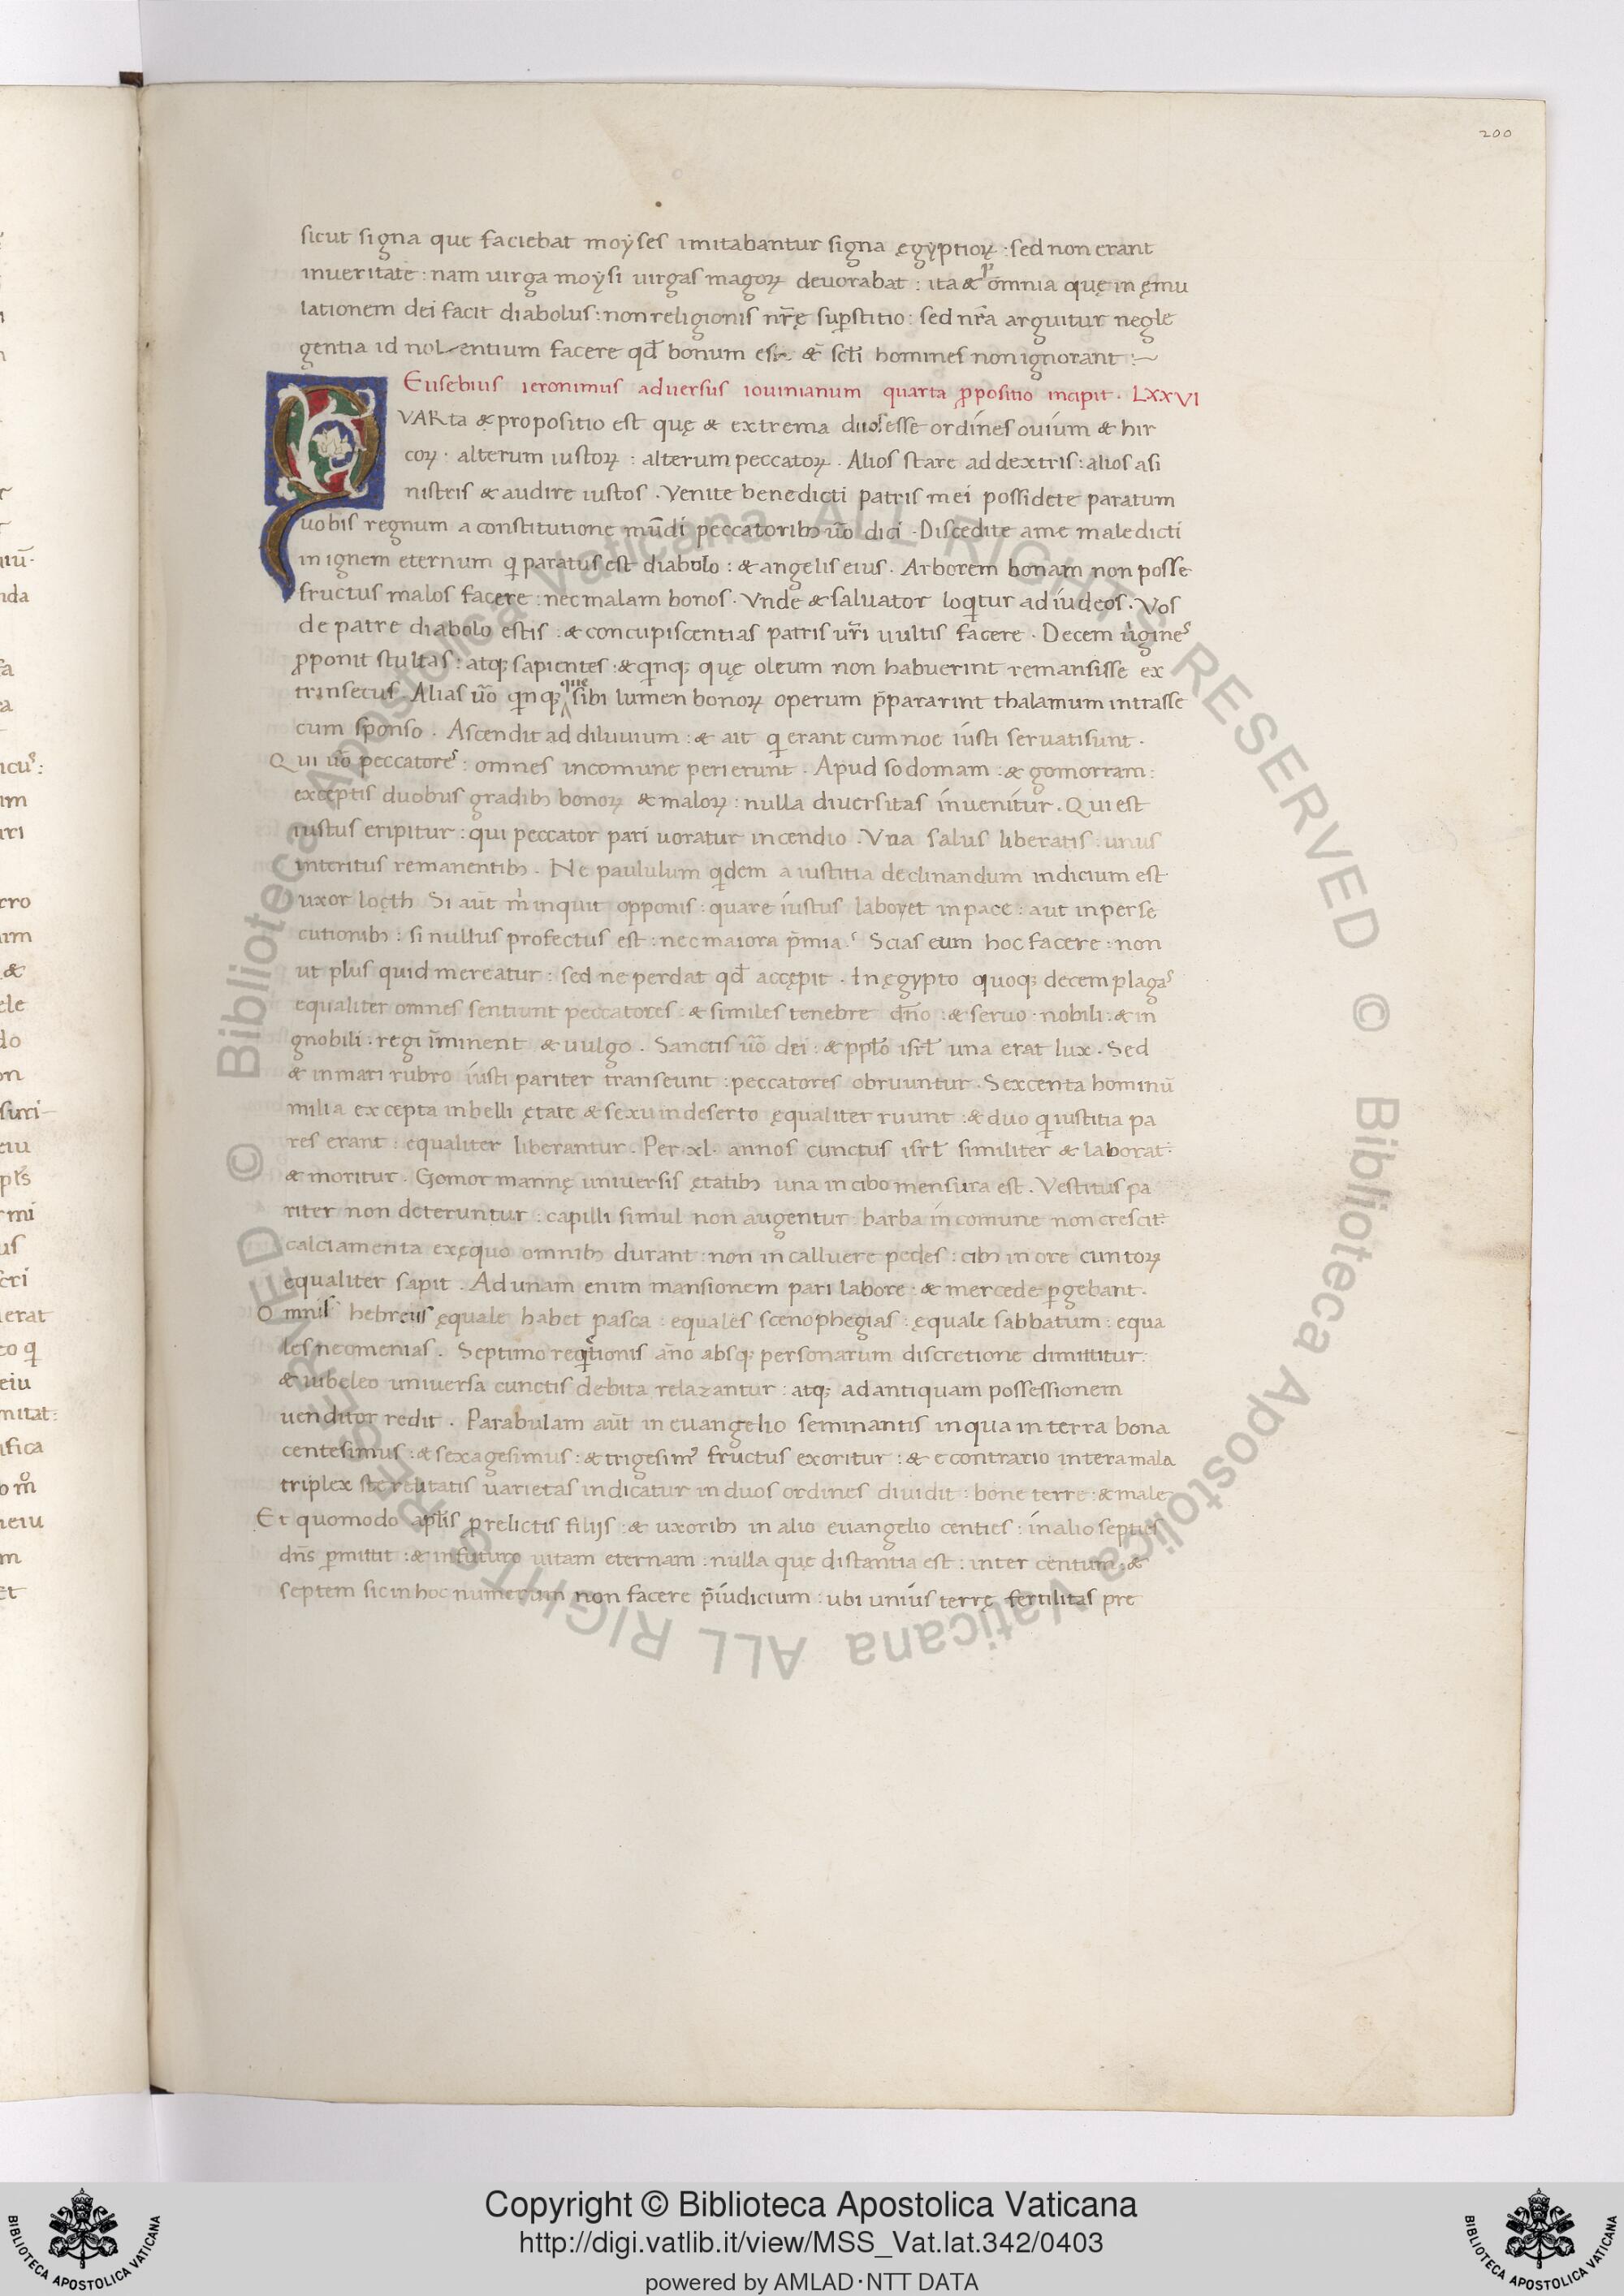 200
sicut signa que faciebat moẏses imitabantur signa ęgẏptioꝝ · sed non erant
inueritate : nam uirga moẏsi uirgas magoꝝ deuorabat : ita & omnia quę in ęmu
lationem dei facit diabolus : non religionis nr̄ę suꝑstitio : sed nr̄a arguitur negle
gentia id nolentium facere qđ bonum esse & scłi homines non ignorant :~
Eusebius ieronimus aduersus iouinianum quarta ꝓpositio incipit · LXXVI
QVARta & propositio est quę & extrema duos esse ordines ouium & hir
coꝝ · alterum iustoꝝ : alterum peccatoꝝ · Alios stare ad dextris : alios asi
nistris & audire iustos · Venite benedicti patris mei possidete paratum
uobis regnum a constitutione mūdi peccatorib; uō dici · Discedite ame maledicti
in ignem eternum q̇ paratus est diabolo : & angelis eius · Arborem bonam non posse
fructus malos facere : nec malam bonos · Vnde & saluator loq̇tur ad iudeos · Vos
de patre diabolo estis : & concupiscentias patris ur̄i uultis facere · Decem uigines
ꝓponit stultas : atq; sapientes : & q̇nq; quę oleum non habuerint remansisse ex
trinsecus · Alias uō q̇nq; quę sibi lumen bonoꝝ operum p̄pararint thalamum intrasse
cum sponso · Ascendit ad diluuium : & ait q̇ erant cum noe iusti seruati sunt ·
Qui uō peccatores : omnes incomune perierunt · Apud sodomam : & gomorram :
exceptis duobus gradib; bonoꝝ & maloꝝ : nulla diuersitas inuenitur · Qui est
iustus eripitur : qui peccator pari uoratur incendio · Vna salus liberatis : unus
interitus remanentib; · Ne paululum q̇dem a iustitia declinandum indicium est
uxor locth Si aūt m̍ inquit opponis : quare iustus laboret inpace : aut inperse
cutionib; : si nullus profectus est : nec maiora p̄mia · Scias eum hoc facere : non
ut plus quid mereatur : sed ne perdat qđ accępit · In ęgypto quoq; decem plagas
equaliter omnes sentiunt peccatores : & similes tenebre dn̄o : & seruo · nobili : & in
gnobili · regi īminent & uulgo · Sanctis uō dei : & ppłō isrł una erat lux · Sed
& inmari rubro iusti pariter transeunt : peccatores obruuntur · Sexcenta hominū
milia excepta inbelli ętate & sexu indeserto ęqualiter ruunt : & duo q̇ iustitia pa
res erant : equaliter liberantur · Per · xl · annos cunctus isrł similiter & laborat :
& moritur · Gomor mannę uniuersis ętatib; una incibo mensura est · Vestitus pa
riter non deteruntur : capilli simul non augentur : barba in comune non crescit :
calciamenta exęquo omnib; durant : non incalluere pedes : cib; in ore cuntoꝝ
equaliter sapit · Ad unam enim mansionem pari labore : & mercede ꝑgebant ·
Omnis hebreus ęquale habet pasca : equales scenophegias : ęquale sabbatum : equa
les neomenias · Septimo req̇tionis an̄o absq; personarum discretione dimittitur :
& iubeleo uniuersa cunctis debita relaxantur : atq; ad antiquam possessionem
uenditor redit · Parabulam aūt in euangelio seminantis inqua interra bona
centesimus : & sexagesimus : & trigesim9 fructus exoritur : & e contrario intera mala
triplex sterelitatis uarietas indicatur induos ordines diuidit : bone terre : & male
Et quomodo apłis ꝑ relictis filijs : & uxorib; in alio euangelio centies : in alio septies
dn̄s ꝑmittit : & infuturo uitam eternam : nulla que distantia est : inter centum : &
septem sic in hoc numerum non facere p̄iudicium : ubi unius terrę fertilitas pre
© Biblioteca Apostolica Vaticana ALL RIGHTS RESERVED
© Biblioteca Apostolica Vaticana ALL RIGHTS RESERVED
Copyright © Biblioteca Apostolica Vaticana
http://digi.vatlib.it/view/MSS_Vat.lat.342/0403
powered by AMLAD·NTT DATA
BIBLIOTECA APOSTOLICA VATICANA
BIBLIOTECA APOSTOLICA VATICANA